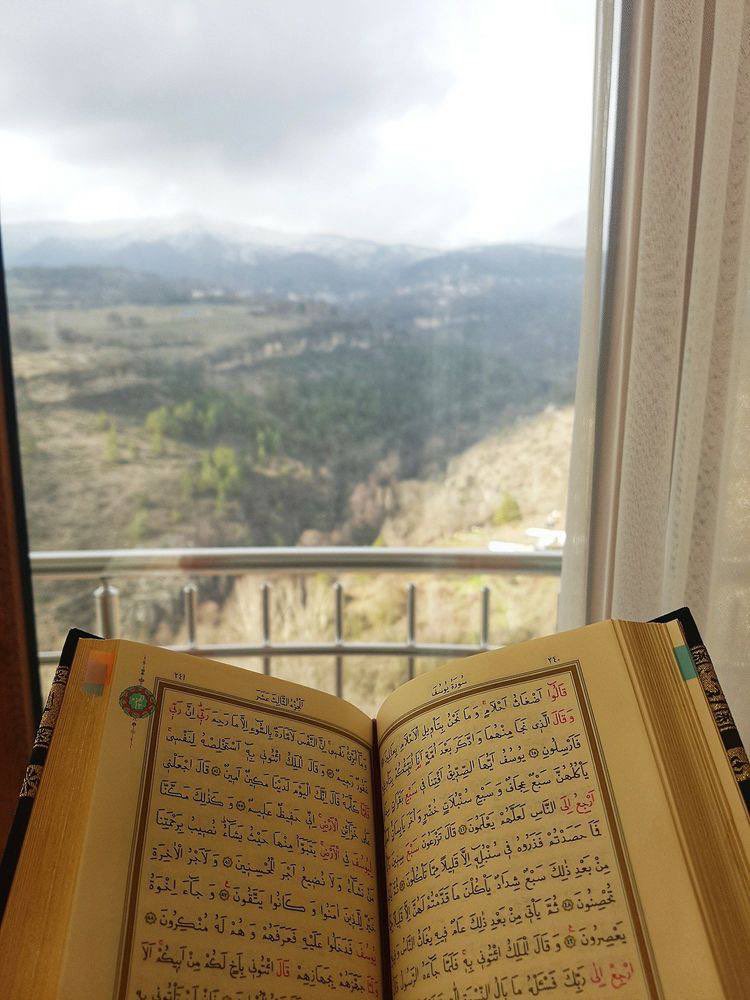 سُورَةُ يُوسُفَ ٢٤٠
قَالُٓوا اَضْغَاثُ اَحْلَامٍ وَمَا نَحْنُ بِتَأْوِيلِ الْاَحْلَامِ
وَقَالَ الَّذِي نَجَا مِنْهُمَا وَادَّكَرَ بَعْدَ اُمَّةٍ اَنَا۬ اُنَبِّئُكُمْ
فَاَرْسِلُونِ ٤٥ يُوسُفُ اَيُّهَا الصِّدِّيقُ اَفْتِنَا فِي سَبْعِ بَقَرَاتٍ
يَأْكُلُهُنَّ سَبْعٌ عِجَافٌ وَسَبْعِ سُنْبُلَاتٍ خُضْرٍ وَاُخَرَ يَابِسَاتٍ
اَرْجِعُ اِلَى النَّاسِ لَعَلَّهُمْ يَعْلَمُونَ ٤٦ قَالَ تَزْرَعُونَ سَبْعَ سِنِينَ
فَمَا حَصَدْتُمْ فَذَرُوهُ فِي سُنْبُلِهِٓ اِلَّا قَلِيلًا مِمَّا تَأْكُلُونَ
مِنْ بَعْدِ ذٰلِكَ سَبْعٌ شِدَادٌ يَأْكُلْنَ مَا قَدَّمْتُمْ لَهُنَّ اِلَّا قَلِيلًا
تُحْصِنُونَ ٤٨ ثُمَّ يَأْتِي مِنْ بَعْدِ ذٰلِكَ عَامٌ فِيهِ يُغَاثُ النَّاسُ
يَعْصِرُونَ ٤٩ وَقَالَ الْمَلِكُ ائْتُونِي بِهِ فَلَمَّا جَٓاءَهُ الرَّسُولُ
ارْجِعْ اِلٰى رَبِّكَ فَسْـَٔلْهُ مَا بَالُ النِّسْوَةِ
اَلْجُزْءُ الثَّالِثَ عَشَرَ ٢٤١
وَمَٓا اُبَرِّئُ نَفْسِي اِنَّ النَّفْسَ لَاَمَّارَةٌ بِالسُّٓوءِ اِلَّا مَا رَحِمَ رَبِّي اِنَّ رَبِّي
غَفُورٌ رَحِيمٌ ٥٣ وَقَالَ الْمَلِكُ ائْتُونِي بِهِٓ اَسْتَخْلِصْهُ لِنَفْسِي
فَلَمَّا كَلَّمَهُ قَالَ اِنَّكَ الْيَوْمَ لَدَيْنَا مَكِينٌ اَمِينٌ ٥٤ قَالَ اجْعَلْنِي
عَلٰى خَزَٓائِنِ الْاَرْضِ اِنِّي حَفِيظٌ عَلِيمٌ ٥٥ وَكَذٰلِكَ مَكَّنَّا
لِيُوسُفَ فِي الْاَرْضِ يَتَبَوَّاُ مِنْهَا حَيْثُ يَشَٓاءُ نُصِيبُ بِرَحْمَتِنَا
مَنْ نَشَٓاءُ وَلَا نُضِيعُ اَجْرَ الْمُحْسِنِينَ ٥٦ وَلَاَجْرُ الْاٰخِرَةِ
خَيْرٌ لِلَّذِينَ اٰمَنُوا وَكَانُوا يَتَّقُونَ ٥٧ وَجَٓاءَ اِخْوَةُ
يُوسُفَ فَدَخَلُوا عَلَيْهِ فَعَرَفَهُمْ وَهُمْ لَهُ مُنْكِرُونَ ٥٨
وَلَمَّا جَهَّزَهُمْ بِجَهَازِهِمْ قَالَ ائْتُونِي بِاَخٍ لَكُمْ مِنْ اَبِيكُمْ اَلَا